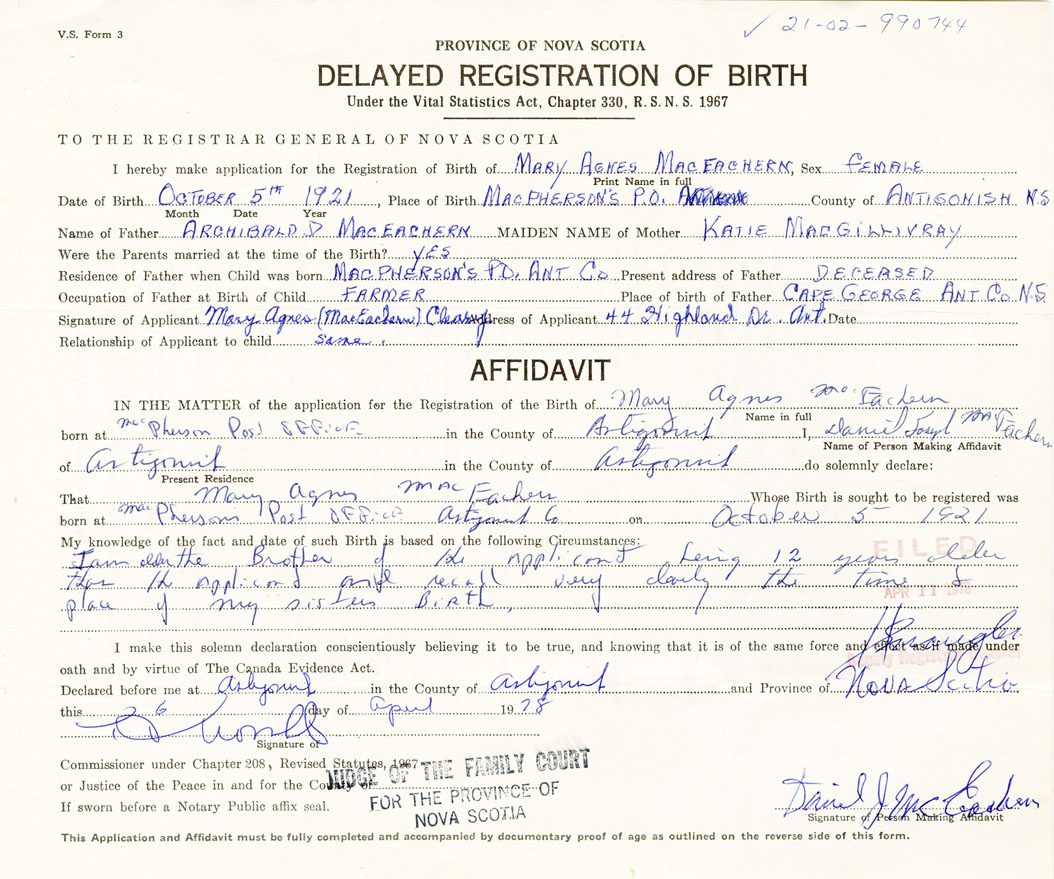 V.S. Form 3
✓ 21-02-990744
PROVINCE OF NOVA SCOTIA
DELAYED REGISTRATION OF BIRTH
Under the Vital Statistics Act, Chapter 330, R. S. N. S. 1967
TO THE REGISTRAR GENERAL OF NOVA SCOTIA
I hereby make application for the Registration of Birth of MARY AGNES MACEACHERN, Sex FEMALE
Print Name in full
Date of Birth OCTOBER 5TH 1921, Place of Birth MACPHERSON'S P.O. County of ANTIGONISH N.S
Month Date Year
Name of Father ARCHIBALD D MACEACHERN MAIDEN NAME of Mother KATIE MACGILLIVRAY
Were the Parents married at the time of the Birth? YES
Residence of Father when Child was born MACPHERSON'S P.O. ANT CO Present address of Father DECEASED
Occupation of Father at Birth of Child FARMER Place of birth of Father CAPE GEORGE ANT CO. N.S.
Signature of Applicant Mary Agnes (MacEachern) Cleary Address of Applicant 44 Highland Dr. Ant. Date
Relationship of Applicant to child same.
AFFIDAVIT
IN THE MATTER of the application for the Registration of the Birth of Mary Agnes MacEachern
Name in full
born at MacPherson Post Office in the County of Antigonish I, Daniel Joseph MacEachern
Name of Person Making Affidavit
of Antigonish in the County of Antigonish do solemnly declare:
Present Residence
That Mary Agnes MacEachern Whose Birth is sought to be registered was
born at MacPherson's Post Office Antigonish Co on October 5 1921
My knowledge of the fact and date of such Birth is based on the following Circumstances:
I am the Brother of the applicant being 12 years older
than the applicant and recall very clearly the time &
place of my sisters Birth,
FILED
APR 11
I make this solemn declaration conscientiously believing it to be true, and knowing that it is of the same force and effect as if made under
oath and by virtue of The Canada Evidence Act.
Declared before me at Antigonish in the County of Antigonish and Province of Nova Scotia
this 26 day of April 1978
Signature of
Commissioner under Chapter 208, Revised Statutes, 1967
or Justice of the Peace in and for the County of
If sworn before a Notary Public affix seal.
JUDGE OF THE FAMILY COURT
FOR THE PROVINCE OF
NOVA SCOTIA
Daniel J McEachern
Signature of Person Making Affidavit
This Application and Affidavit must be fully completed and accompanied by documentary proof of age as outlined on the reverse side of this form.